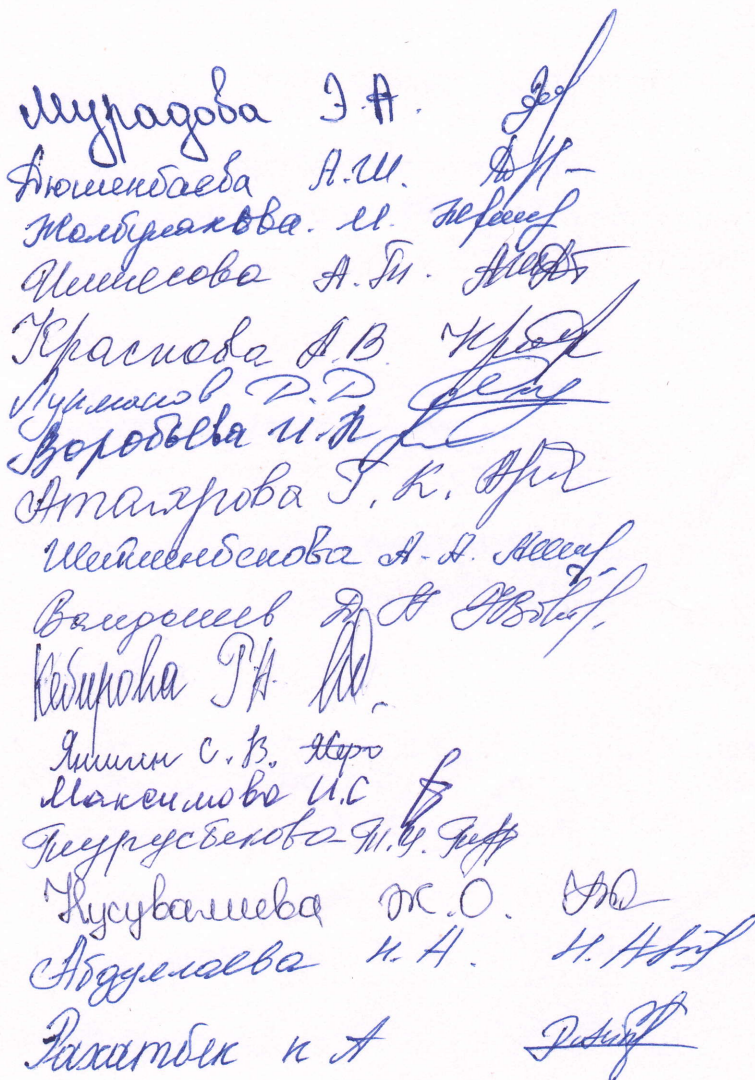 Мурадова Э.А.
Дюшенбаева А.Ш.
Жолбунакова. М.
Имиесова А.Т.
Краснова А.В.
Лукманов Д.Д
Воробьева И.П
Атагярова Г.К.
Шейшенбекова А.А.
Валдышев Д.Н
Кебирова Г.А.
Яншин С.В.
Максимова И.С
Турусбекова Т.Ч.
Кусувалиева Ж.О.
Абдуллаева Н.А.
Рахатбек к А